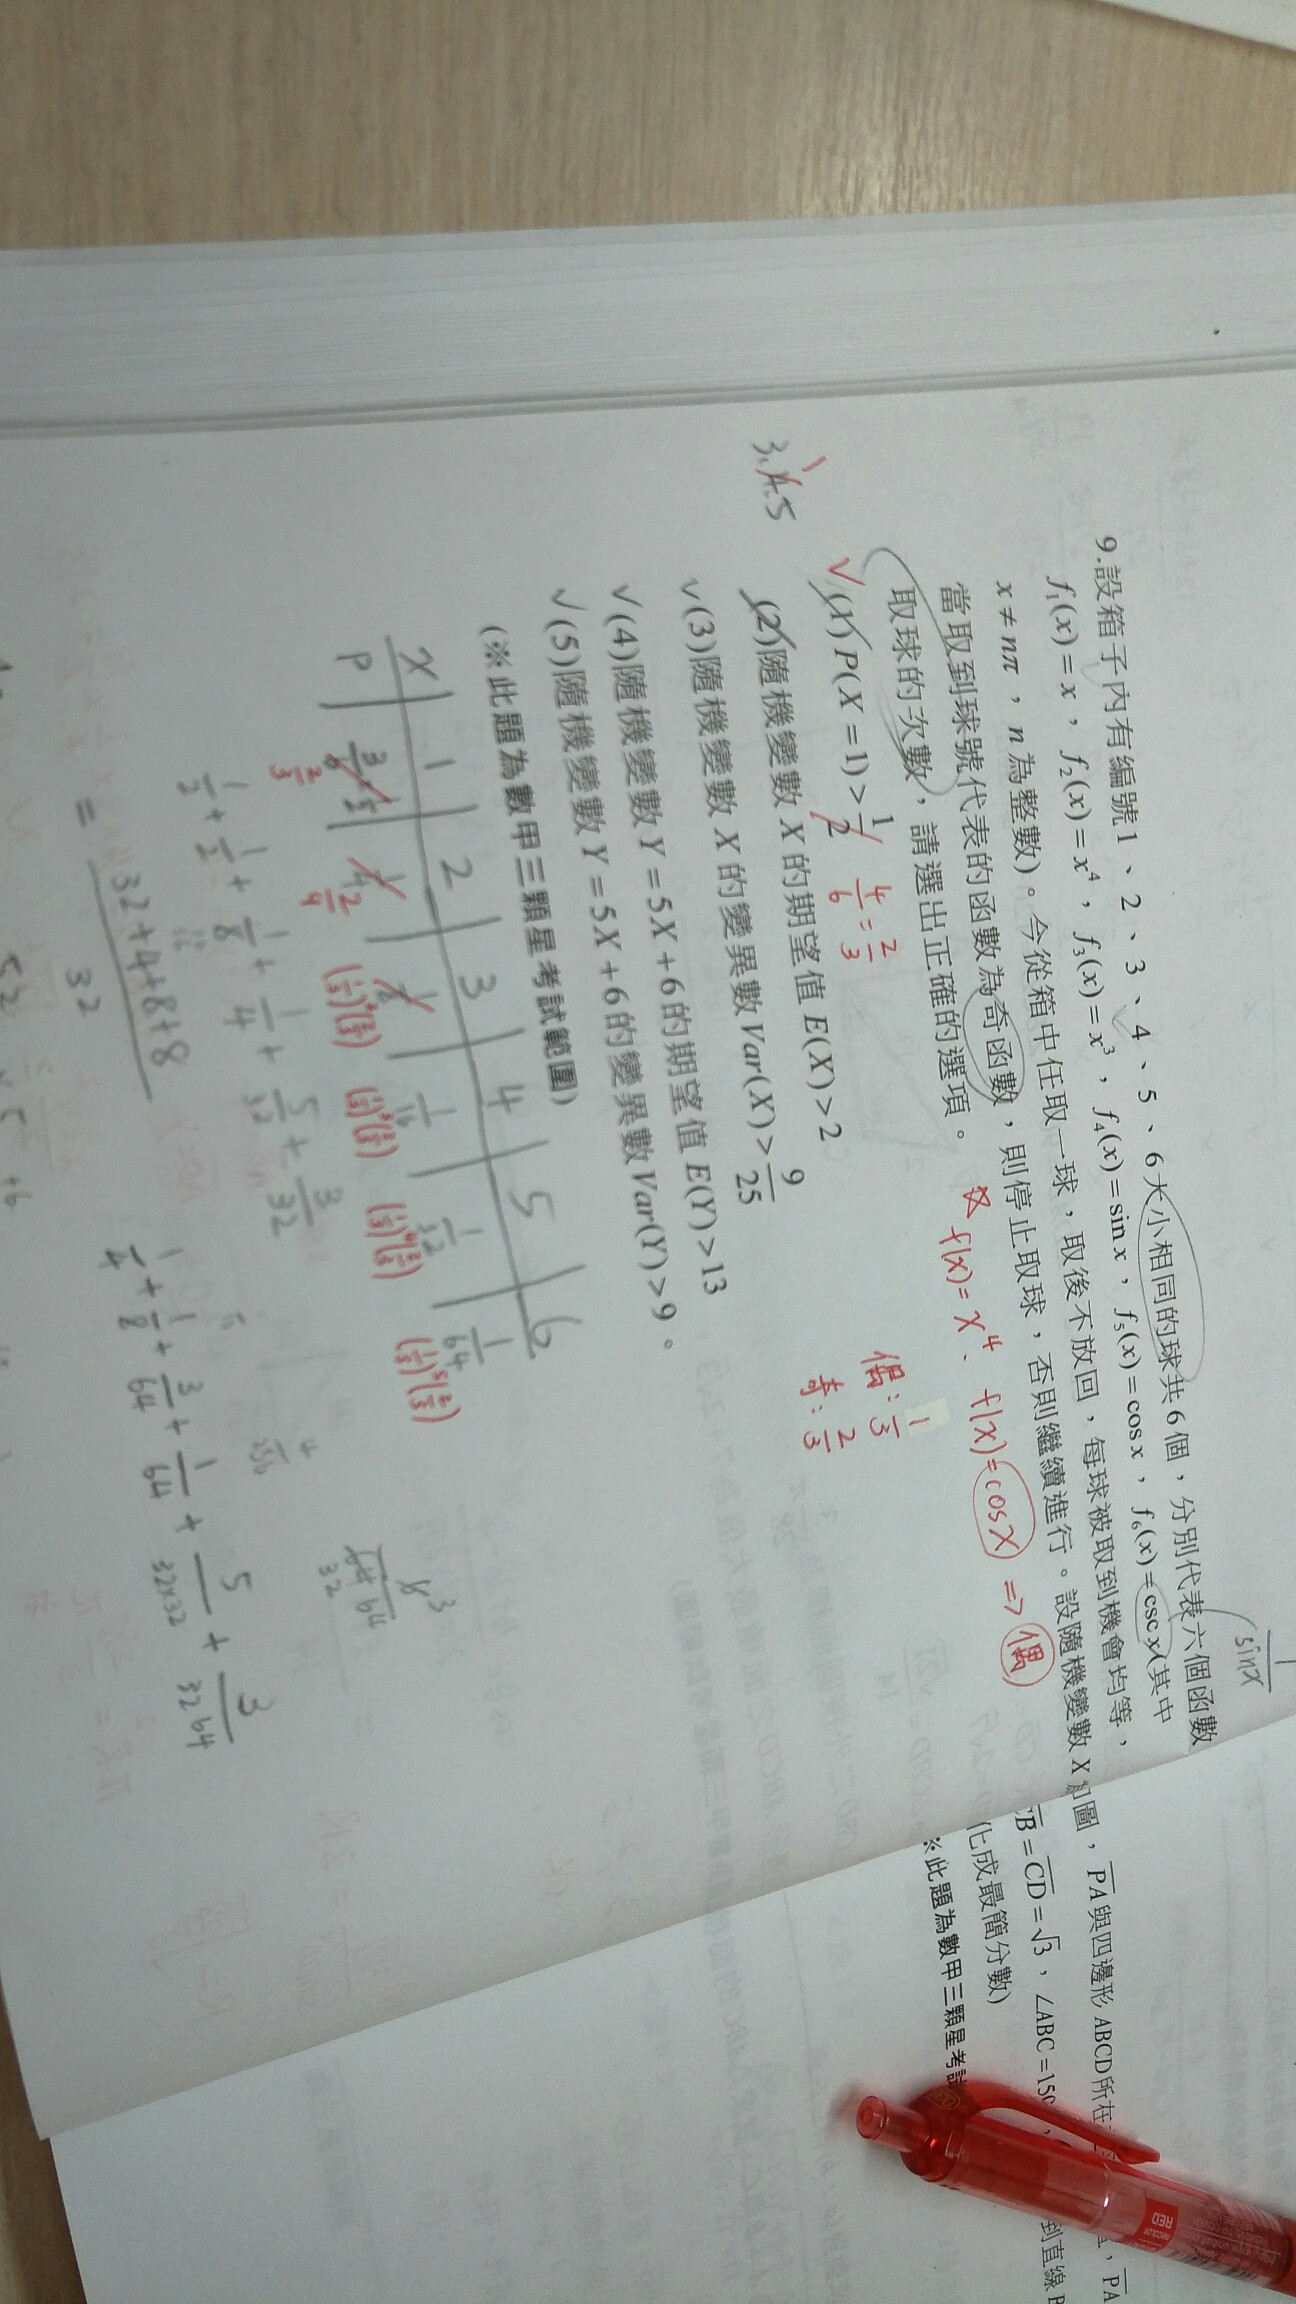 9.設箱子內有編號1、2、3、4、5、6大小相同的球共6個，分別代表六個函數
f₁(x)=x，f₂(x)=x⁴，f₃(x)=x³，f₄(x)=sin x，f₅(x)=cos x，f₆(x)=csc x(其中
x≠nπ，n為整數)。今從箱中任取一球，取後不放回，每球被取到機會均等，
當取到球號代表的函數為奇函數，則停止取球，否則繼續進行。設隨機變數X
取球的次數，請選出正確的選項。
1/sinx
※ f(x)=x⁴、f(x)=cosx ⇒ 偶
偶：1/3
奇：2/3
3.4.5
√(1) P(X=1)>1/2 4/6=2/3
(2)隨機變數X的期望值E(X)>2
√(3)隨機變數X的變異數Var(X)>9/25
√(4)隨機變數Y=5X+6的期望值E(Y)>13
√(5)隨機變數Y=5X+6的變異數Var(Y)>9。
(※此題為數甲三顆星考試範圍)
X 1 2 3 4 5 6
P 3/6 1/2 1/4 1/8 1/16 1/32 1/64
2/3 2/9 (1/3)²(2/3) (1/3)³(2/3) (1/3)⁴(2/3) (1/3)⁵(2/3)
1/2+1/2+3/8+1/4+5/32+3/32
=32+4+8+8/32
1/4+1/8+3/64+1/64+5/32×32+3/3264
如圖，PA與四邊形ABCD所在
CB=CD=√3，∠ABC=150
化成最簡分數)
※此題為數甲三顆星考試
，PA
到直線
RED